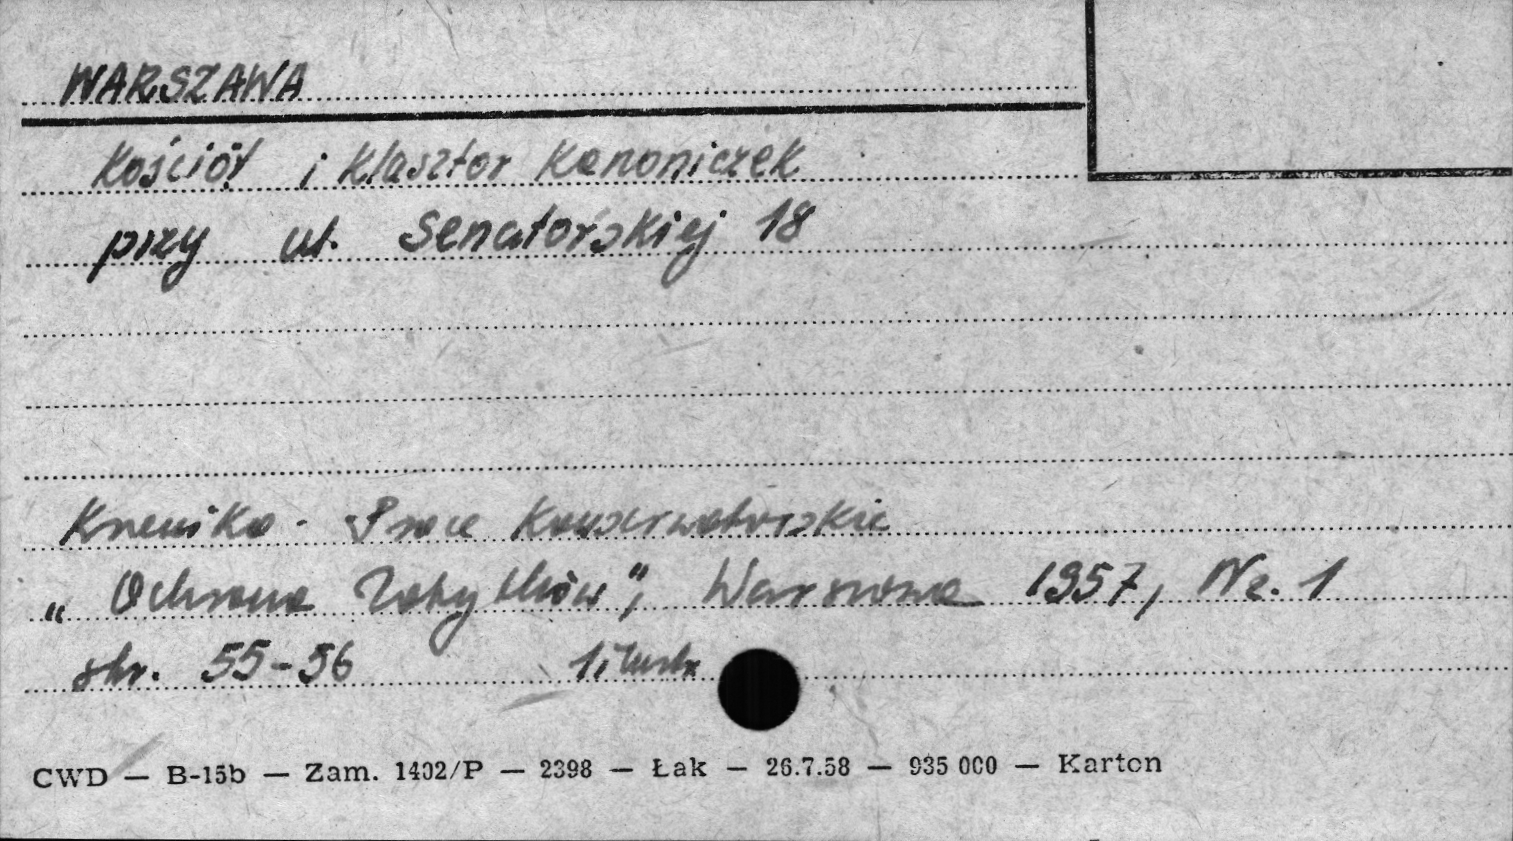 WARSZAWA
Kościół i Klasztor Kanoniczek
przy ul. Senatorskiej 18
Kronika. Prace Konserwatorskie
"Ochrona Zabytków", Warszawa 1957, Nr. 1
str. 55-56 1 ilustr.
CWD — B-15b — Zam. 1402/P — 2398 — Łak — 26.7.58 — 935 000 — Karton